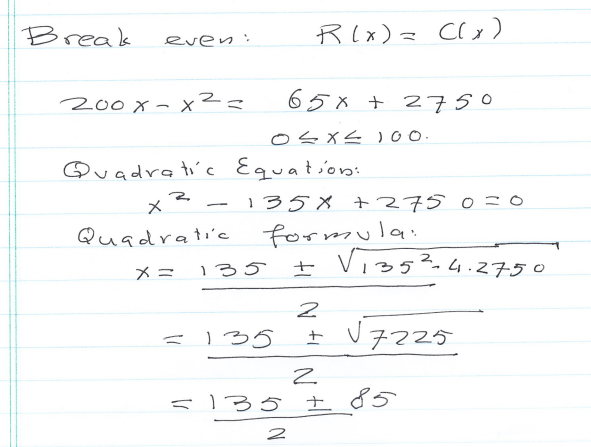 Break even: R(x) = C(x)
200x - x² = 65x + 2750
0 ≤ x ≤ 100.
Quadratic Equation:
x² - 135x + 2750 = 0
Quadratic formula:
x = 135 ± √135² - 4.2750
2
= 135 ± √7225
2
= 135 ± 85
2